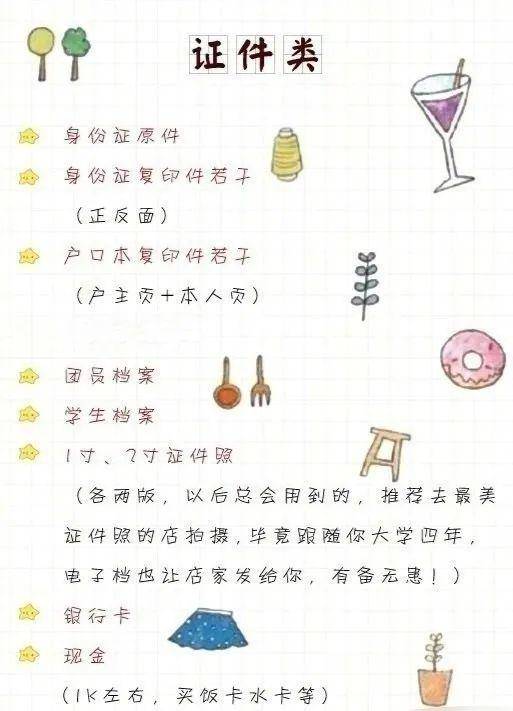 证件类
身份证原件
身份证复印件若干
（正反面）
户口本复印件若干
（户主页+本人页）
团员档案
学生档案
1寸、2寸证件照
（各两版，以后总会用到的，推荐去最美
证件照的店拍摄，毕竟跟随你大学四年，
电子档也让店家发给你，有备无患！）
银行卡
现金
（1K左右，买饭卡水卡等）